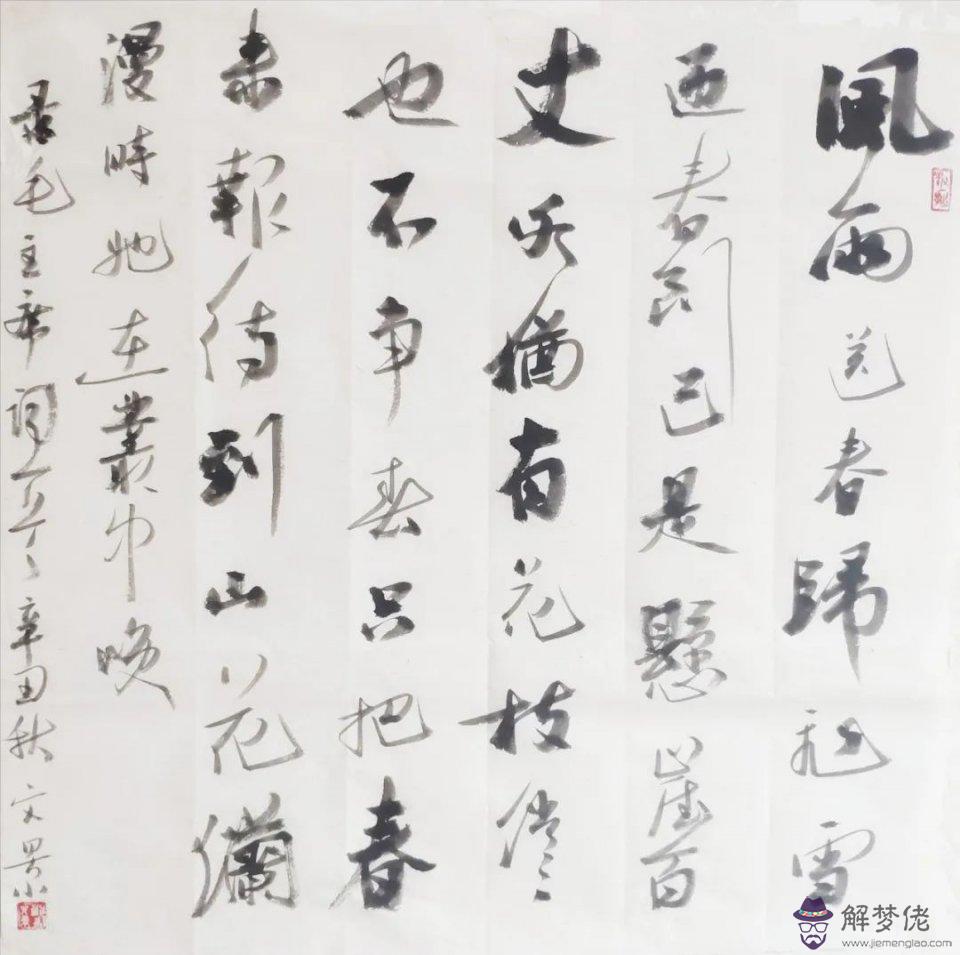 風雨送春歸飛雪
迎春到已是懸崖百
丈冰猶有花枝俏
也不争春只把春
来報待到山花爛
漫時她在叢中咲
录毛主席词一首辛丑秋文景
解梦佬
www.jiemenglao.com